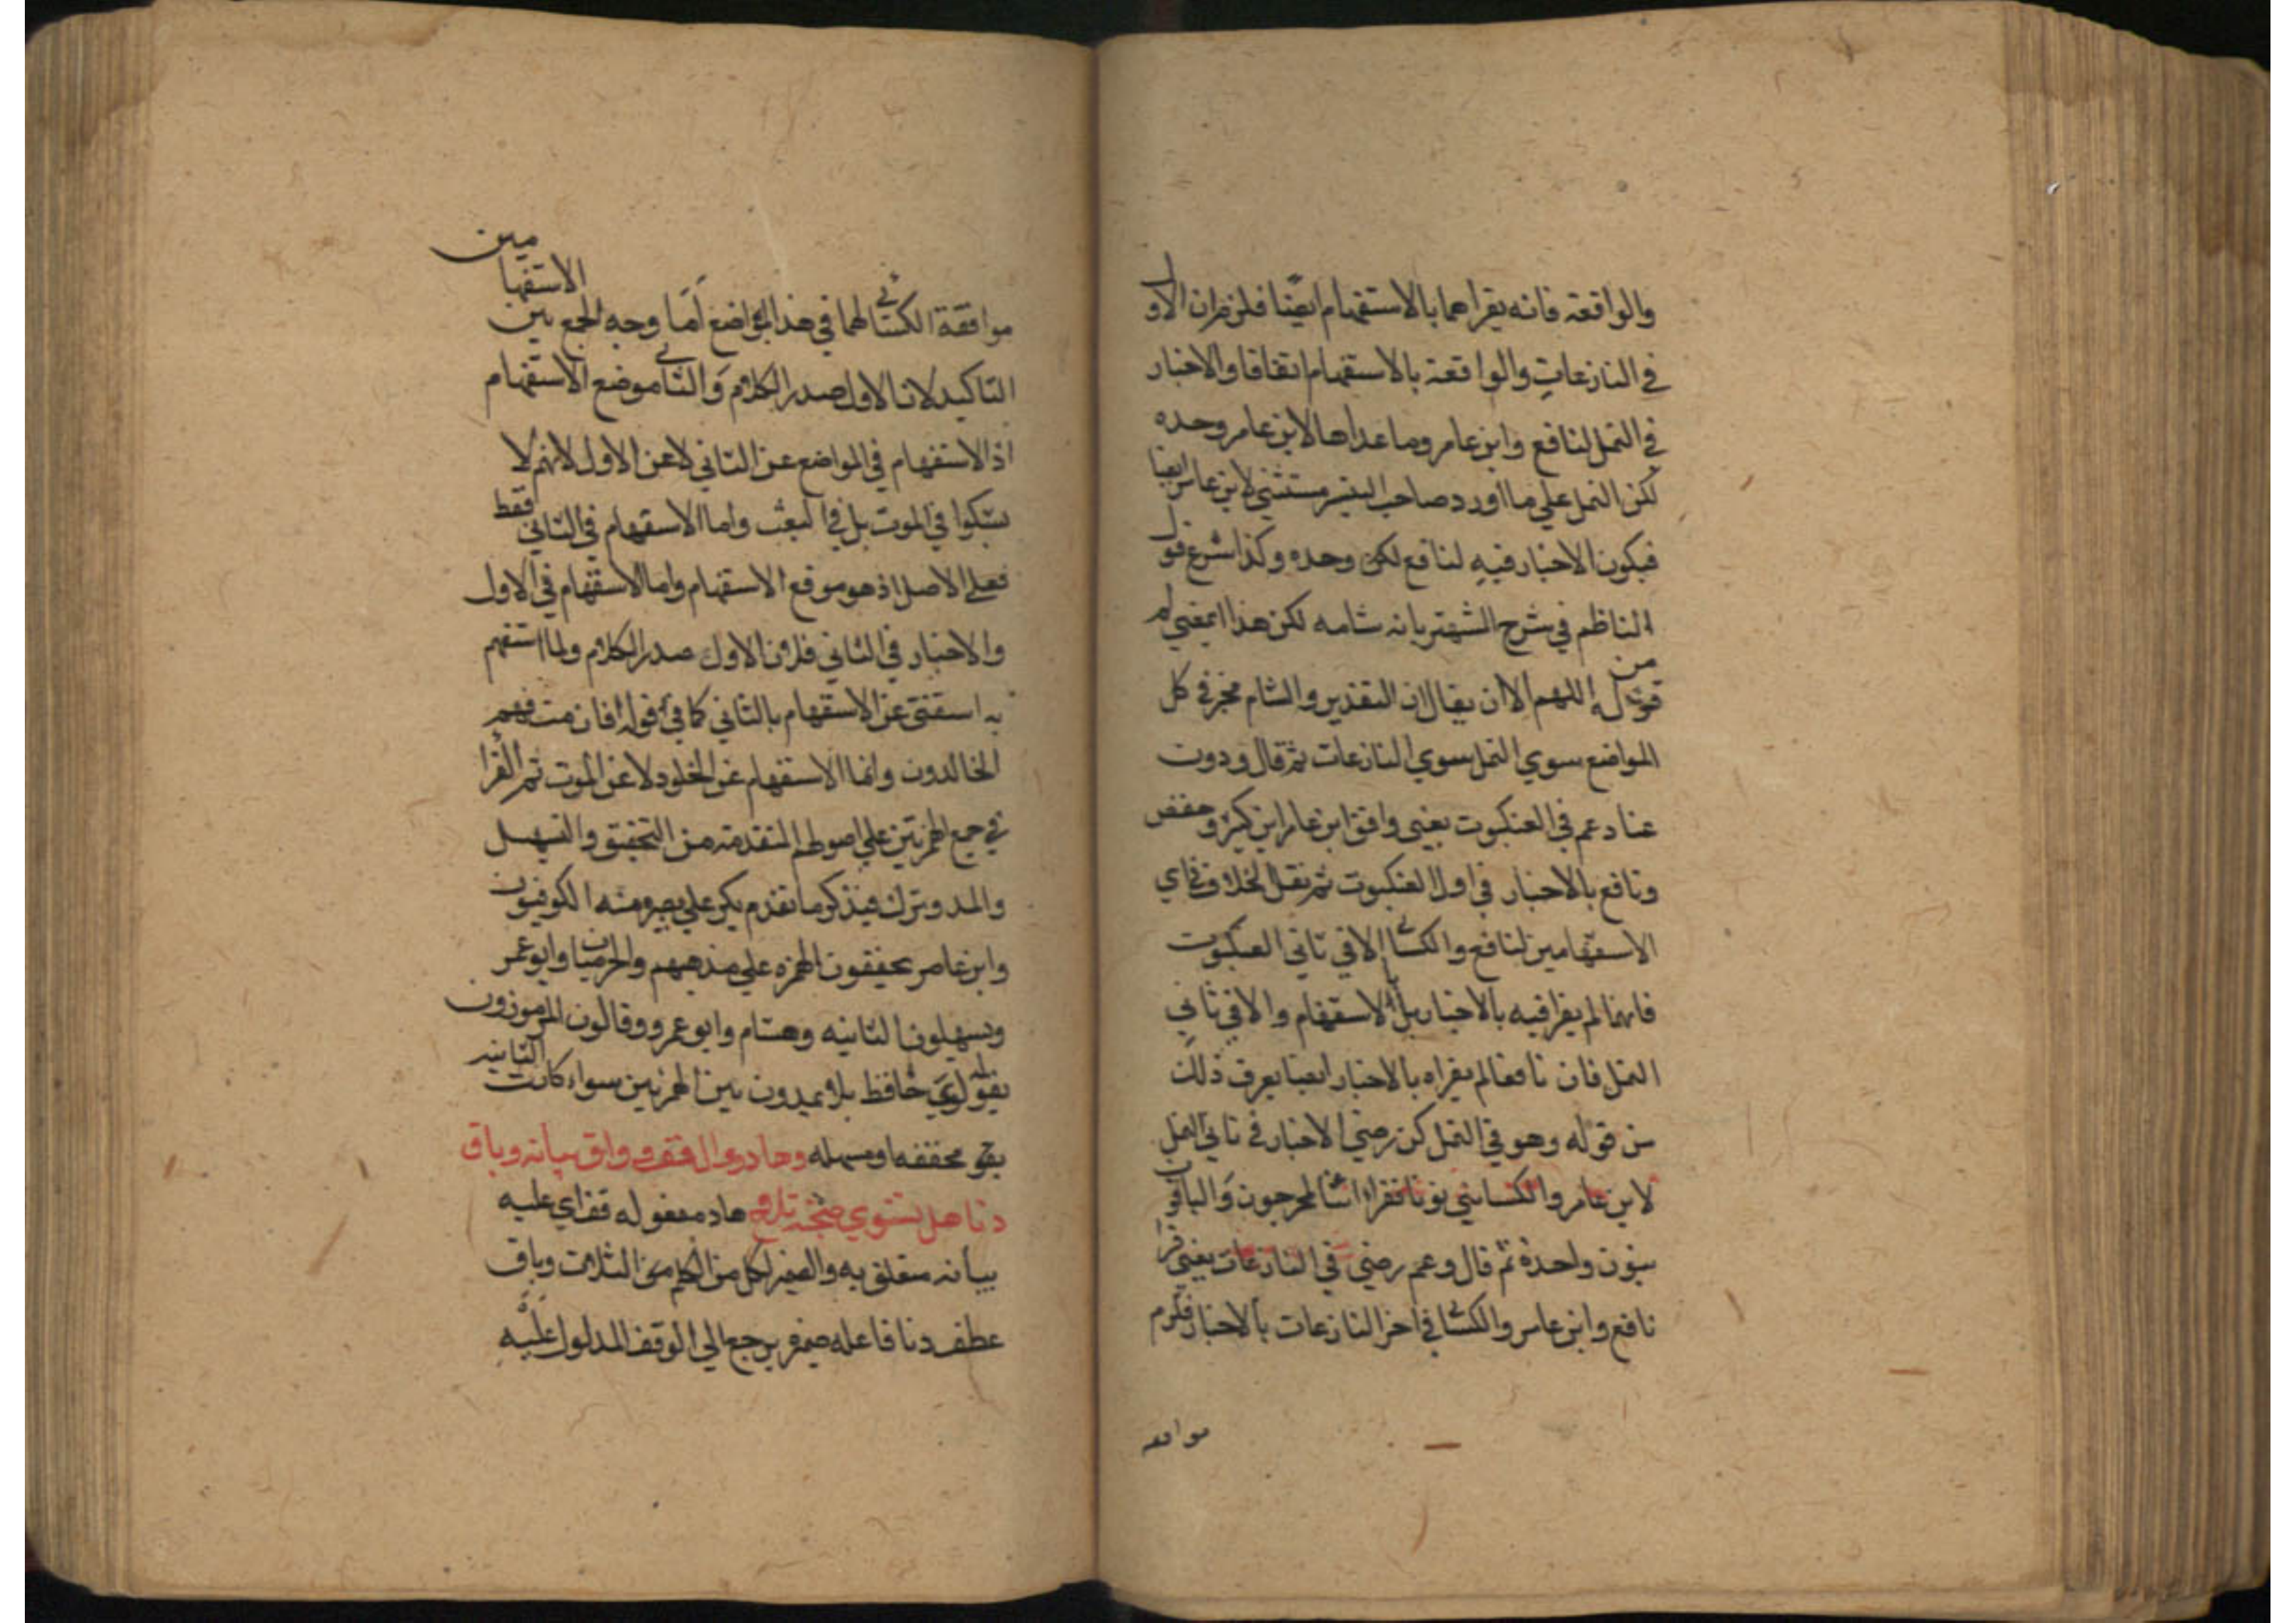 والواقعة فانه يقراهما بالاستفهام ايضا فلزم ان الاول
في النازعات والواقعة بالاستفهام اتفاقا والاخبار
في النمل لنافع وابن عامر وما عداها لابن عامر وحده
لكن النمل علي ما اورد صاحب اليسير مستثني لابن عامر ايضا
فيكون الاخبار فيه لنافع لكن وحده وكذا شرع قول
الناظم في شرح الشهتر بانه شامه لكن هذا المعني لم
من قوله اللهم الا ان يقال ان التقدير والشام مخبر في كل
المواضع سوي النمل سوي النازعات ثم قال ودوت
عنا دعم في العنكبوت يعني وافق ابن عامر ابن كثير وحفص
ونافع بالاخبار في اول العنكبوت ثم نقل الخلاف في ثاي
الاستفهامين لنافع والكسائي الا في ثاني العنكبوت
فانهما لم يقرا فيه بالاخبار بل بالاستفهام والا في ثاني
النمل فان نافعا لم يقراه بالاخبار ايضا يعرف ذلك
من قوله وهو في النمل كن رضي الاخبار في ثاني النمل
لابن عامر والكسايئي نونا فقراا اننا لمخرجون والباقون
بنون واحدة ثم قال وعم رضي في النازعات يعني قرا
نافع وابن عامر والكسائي في اخر النازعات بالاخبار فلزم
موافقه
موافقة الكسائي لهما في هذا المواضع اما وجه الجمع بين الاستفهامين
التاكيد لان الاول صدر الكلام والثاني موضع الاستفهام
اذ الاستفهام في المواضع عن الثاني لا عن الاول لانهم لا
يشكوا في الموت بل في البعث واما الاستفهام في الثاني فقط
فعلي الاصل اذ هو موقع الاستفهام واما الاستفهام في الاول
والاخبار في الثاني فلان الاول صدر الكلام ولما استفهم
به استغني عن الاستفهام بالثاني كما في قوله افان مت فهم
الخالدون وانما الاستفهام عن الخلود لا عن الموت ثم القرا
في جميع الهمزتين علي اصولهم المتقدمة من التحقيق والتسهيل
والمد وترك فيذكر ما تقدم يكن علي بصيرة منه الكوفيون
وابن عامر يحققون الهمزه علي مذهبهم والحرميان وابو عمر
ويسهلون الثانيه وهشام وابو عمرو وقالون المرموزون
بقوله لوي حافظ بلا يمدون بين الهمزتين سواء كانت الثانيه
بقي محققه او مسهله وهاد ووال قف وواق بيانه وباق
دنا هل يستوي صحبة تلا وهاد مفعوله قف اي عليه
بيانه متعلق به والضمير لكل من الكلم من الثلاث وباق
عطف دنا فاعله ضمير يرجع الي الوقف المدلول عليه